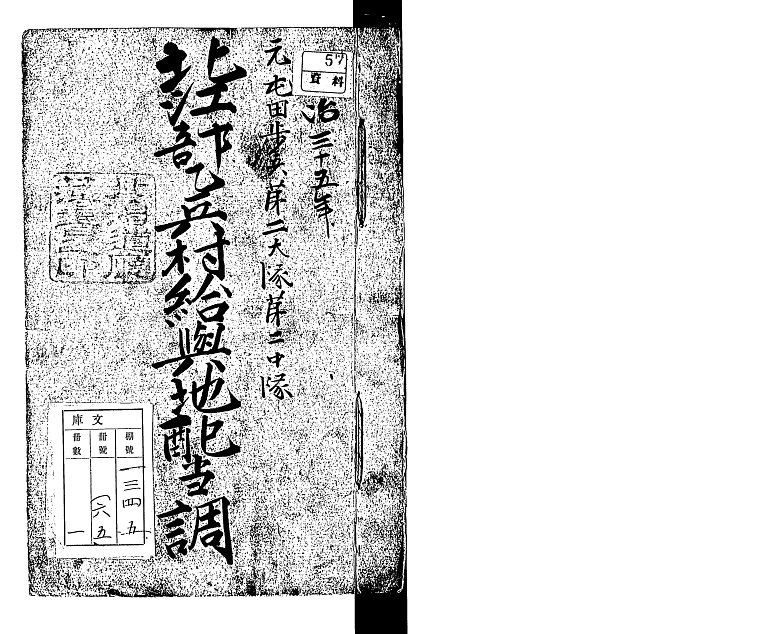 57
資料
治三十五年
元屯田歩兵第二大隊第二中隊
北江部乙兵村給與地配当調
文庫
棚號
一三四五
冊號
(六五)
冊數
一